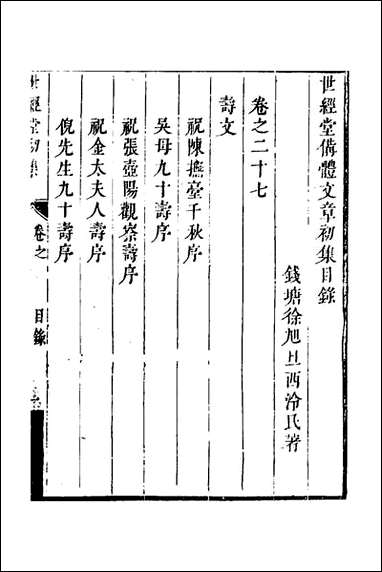 世經堂俻體文章初集目錄
錢塘徐旭旦西泠氏著
卷之二十七
壽文
祝陳撫臺千秋序
吳母九十壽序
祝張壺陽觀察壽序
祝金太夫人壽序
倪先生九十壽序
世經堂初集
卷之
目錄